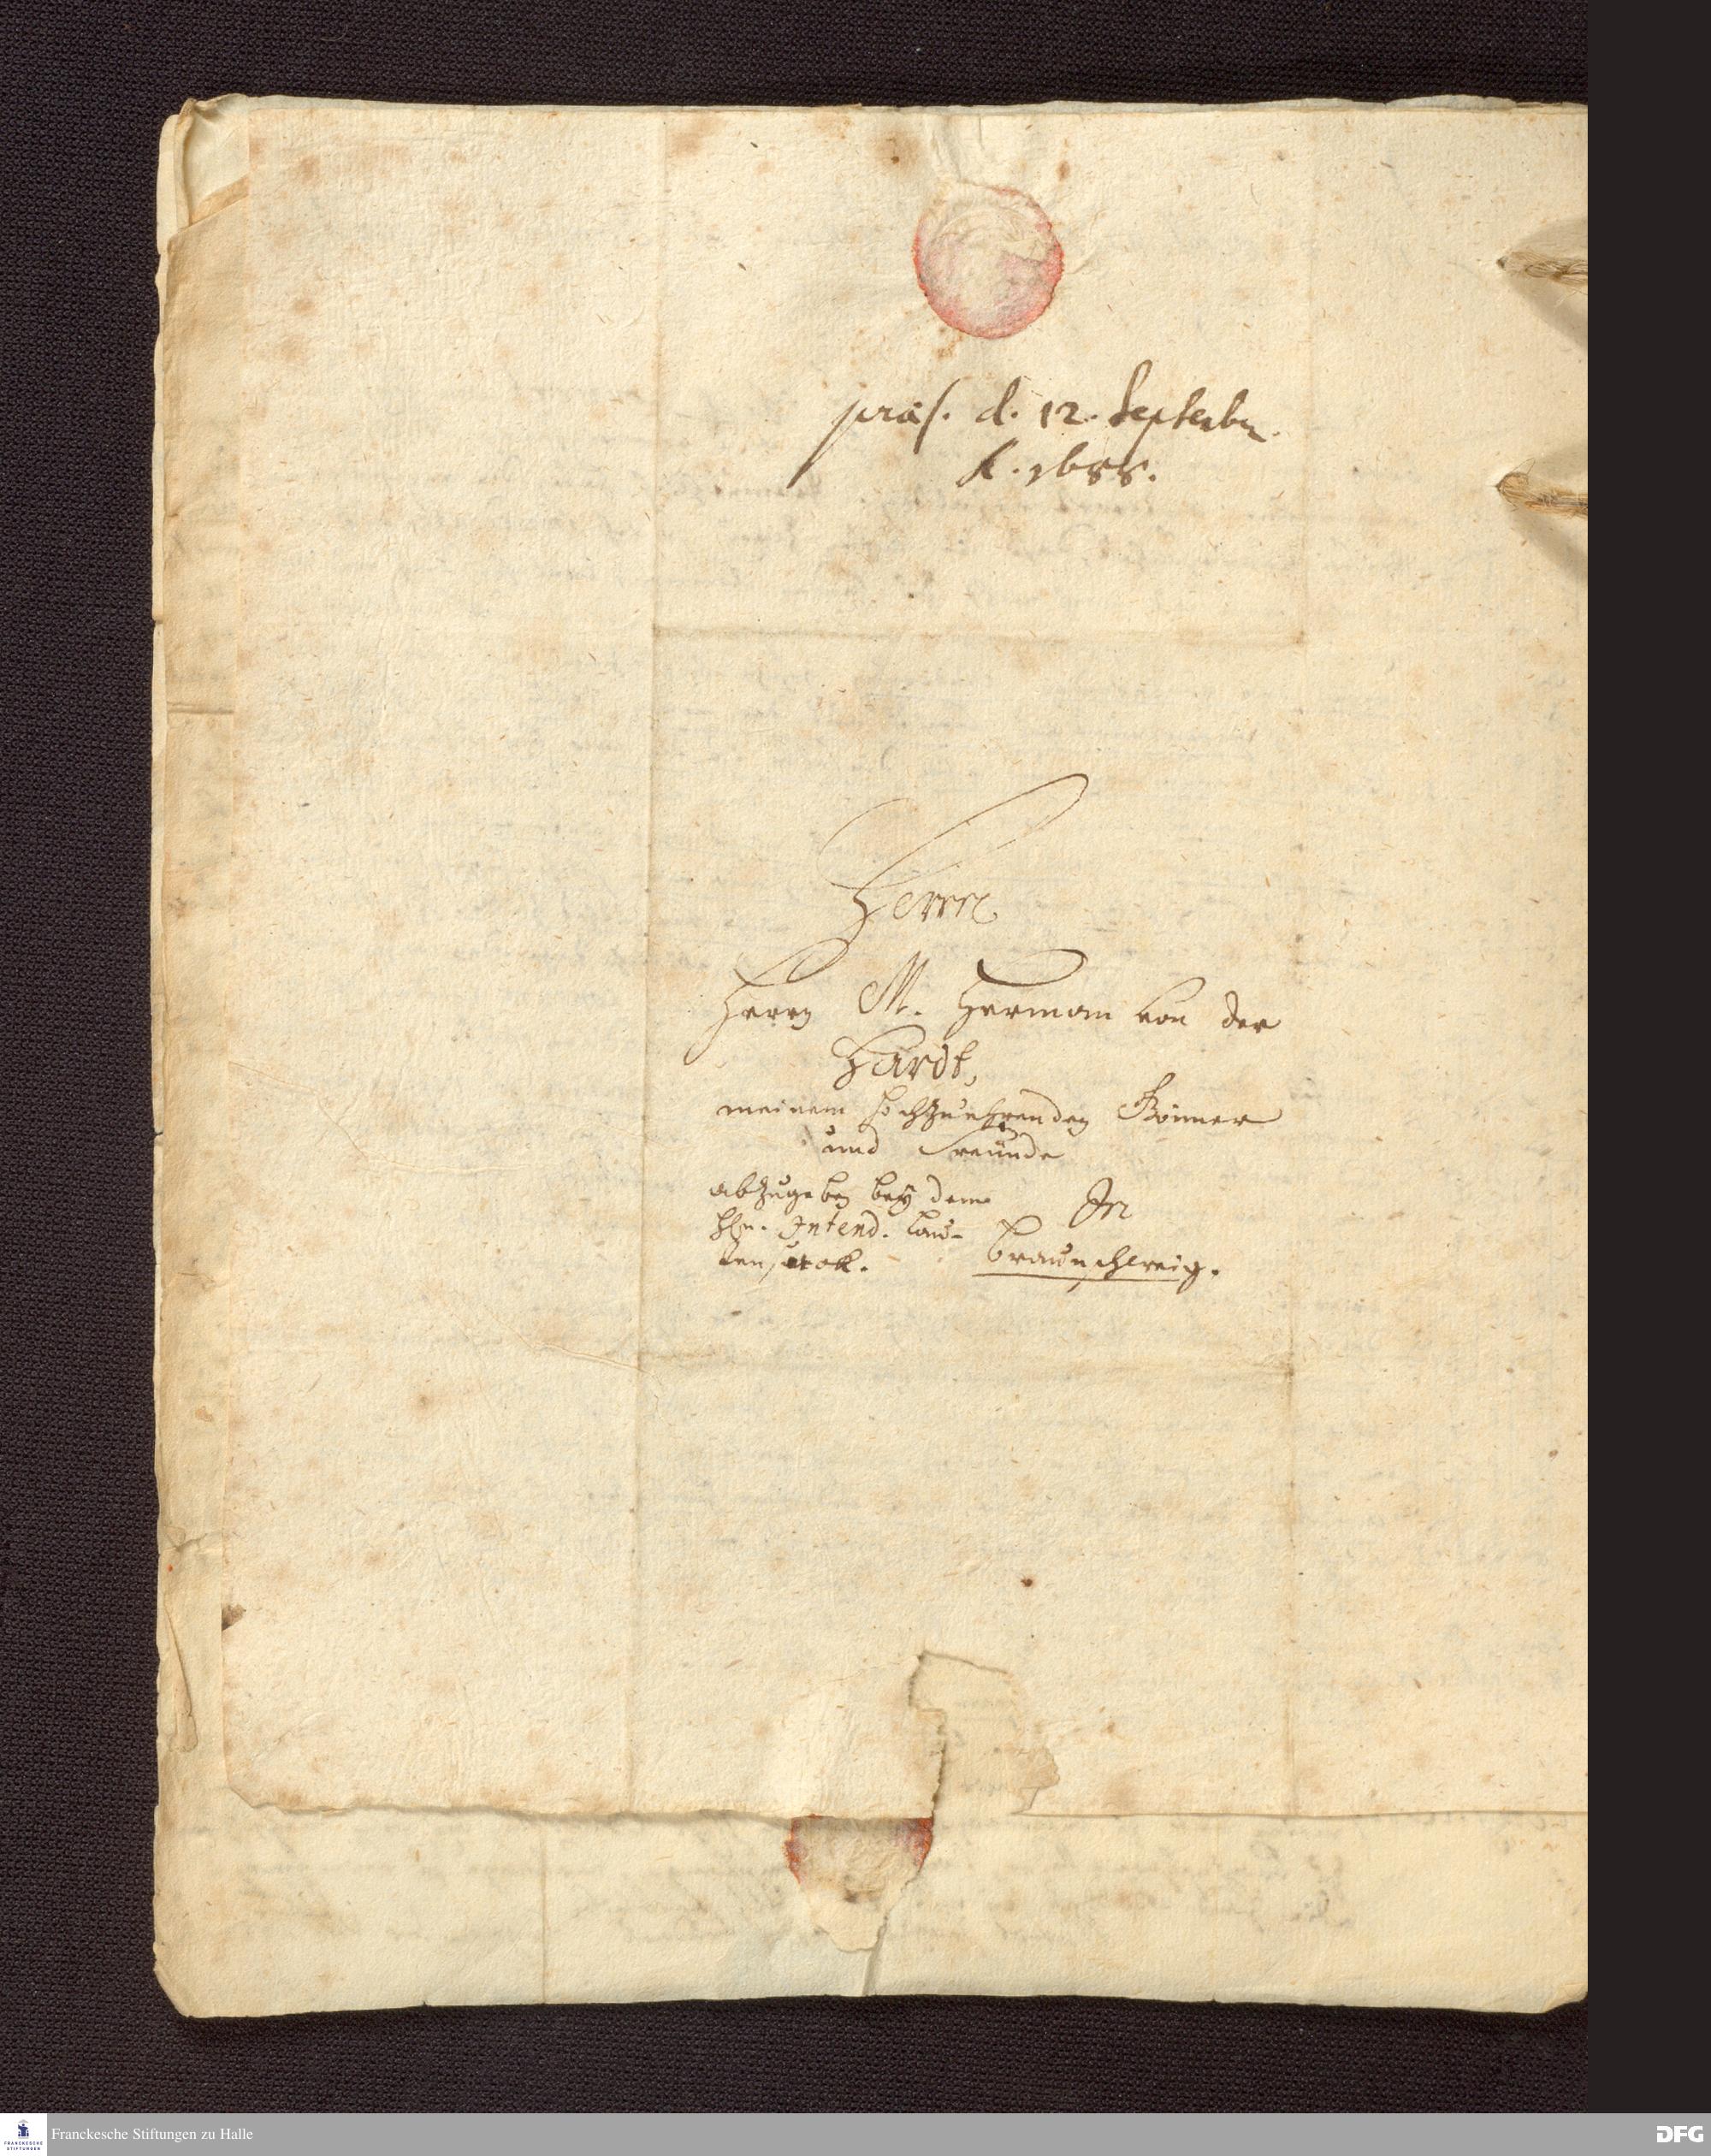 præs. d. 12. Septembr.
A. 1688.
Herrn
Herrn M. Herman von der
Hardt,
meinem hochzuehrenden Gönner
und Freunde
abzugeben beÿ dem
Hln. Intend. Lau-
tensack.
In
Braunschweig.
Franckesche Stiftungen zu Halle
FRANCKESCHE
STIFTUNGEN
DFG